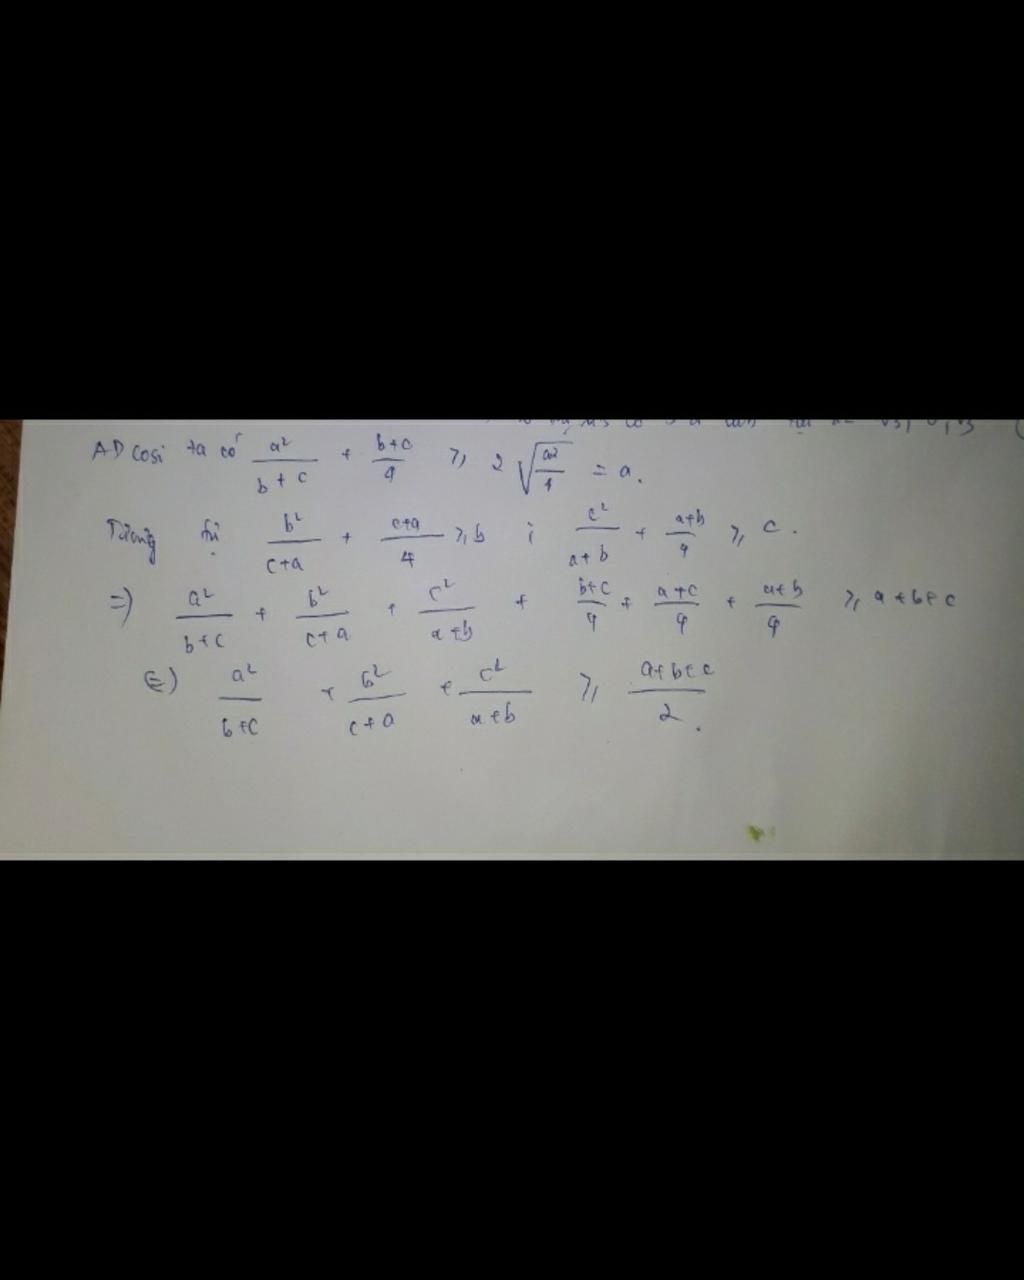 AD cosi ta có a²/(b+c) + (b+c)/4 ≥ 2√(a²/4) = a.
Tương tự b²/(c+a) + (c+a)/4 ≥ b ; c²/(a+b) + (a+b)/4 ≥ c.
=> a²/(b+c) + b²/(c+a) + c²/(a+b) + (b+c)/4 + (a+c)/4 + (a+b)/4 ≥ a+b+c
(=) a²/(b+c) + b²/(c+a) + c²/(a+b) ≥ (a+b+c)/2.